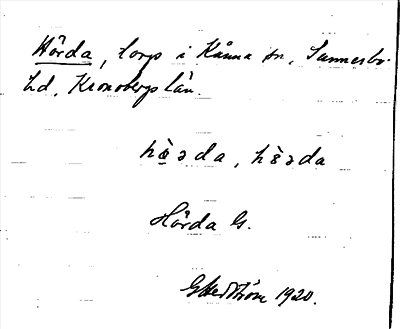 Hörda, torp i Kånna sn, Sunnerbo
hd, Kronobergs län.
hö̱əda, hö̀əda
Hörda G.
1920.